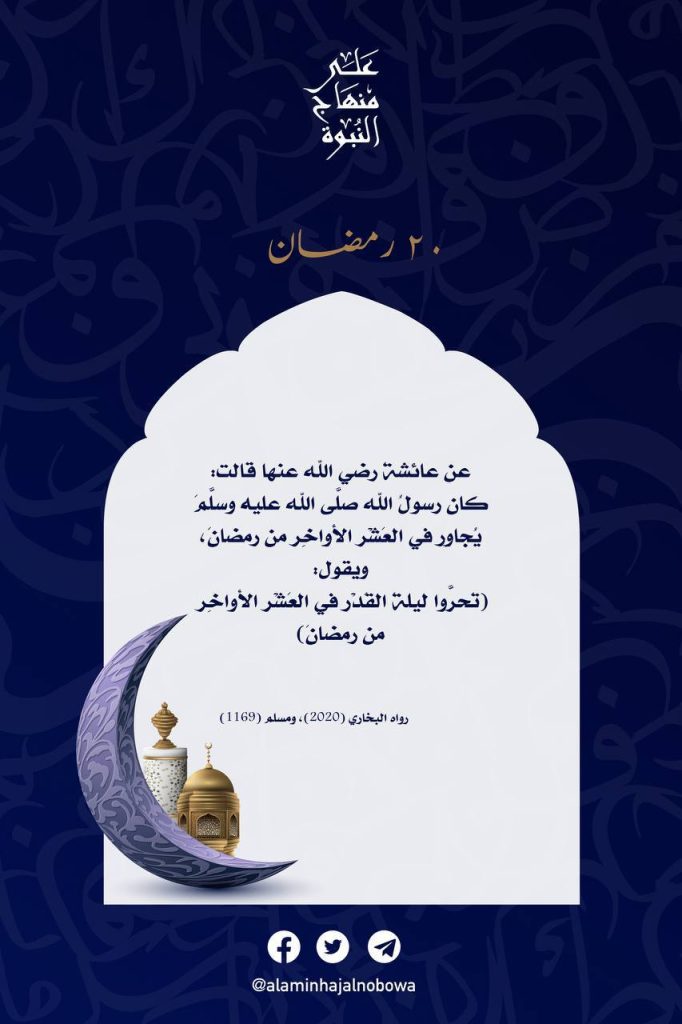 عَلَى
مِنهَاجِ
النُّبوة
٢٠ رمضان
عن عائشة رضي الله عنها قالت:
كان رسولُ الله صلَّى الله عليه وسلَّمَ
يُجاور في العَشْر الأواخِر من رمضانَ،
ويقول:
(تحرَّوا ليلة القَدْر في العَشْر الأواخِر
من رمضانَ)
رواه البخاري (2020)، ومسلم (1169)
@alaminhajalnobowa